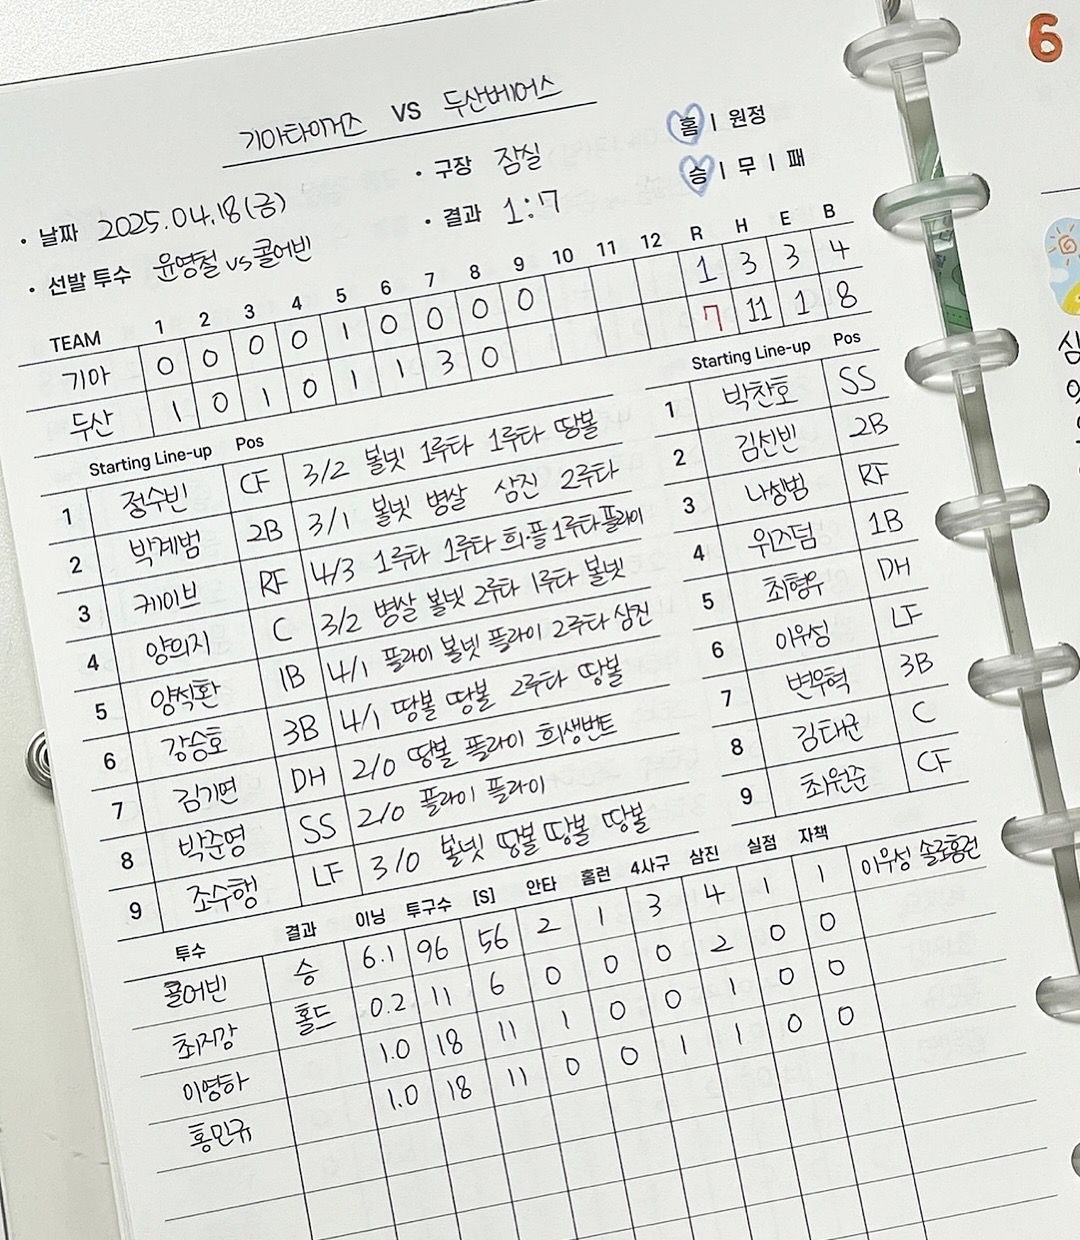 기아타이거즈 VS 두산베어스
· 날짜 2025.04.18(금) · 구장 잠실 홈 | 원정
· 선발 투수 윤영철 vs 콜어빈 · 결과 1:7 승 | 무 | 패
TEAM 1 2 3 4 5 6 7 8 9 10 11 12 R H E B
기아 0 0 0 0 1 0 0 0 0 1 3 3 4
두산 1 0 1 0 1 1 3 0 7 11 1 8
Starting Line-up Pos
1 정수빈 CF 3/2 볼넷 1루타 1루타 땅볼
2 박계범 2B 3/1 볼넷 병살 삼진 2루타
3 케이브 RF 4/3 1루타 1루타 희.플 1루타 플라이
4 양의지 C 3/2 병살 볼넷 2루타 1루타 볼넷
5 양석환 1B 4/1 플라이 볼넷 플라이 2루타 삼진
6 강승호 3B 4/1 땅볼 땅볼 2루타 땅볼
7 김기연 DH 2/0 땅볼 플라이 희생번트
8 박준영 SS 2/0 플라이 플라이
9 조수행 LF 3/0 볼넷 땅볼 땅볼 땅볼
Starting Line-up Pos
1 박찬호 SS
2 김선빈 2B
3 나성범 RF
4 위즈덤 1B
5 최형우 DH
6 이우성 LF
7 변우혁 3B
8 김태군 C
9 최원준 CF
투수 결과 이닝 투구수 [S] 안타 홈런 4사구 삼진 실점 자책
콜어빈 승 6.1 96 56 2 1 3 4 1 1 이우성 솔로홈런
최지강 홀드 0.2 11 6 0 0 0 2 0 0
이영하 1.0 18 11 1 0 0 1 0 0
홍민규 1.0 18 11 0 0 1 1 0 0
6